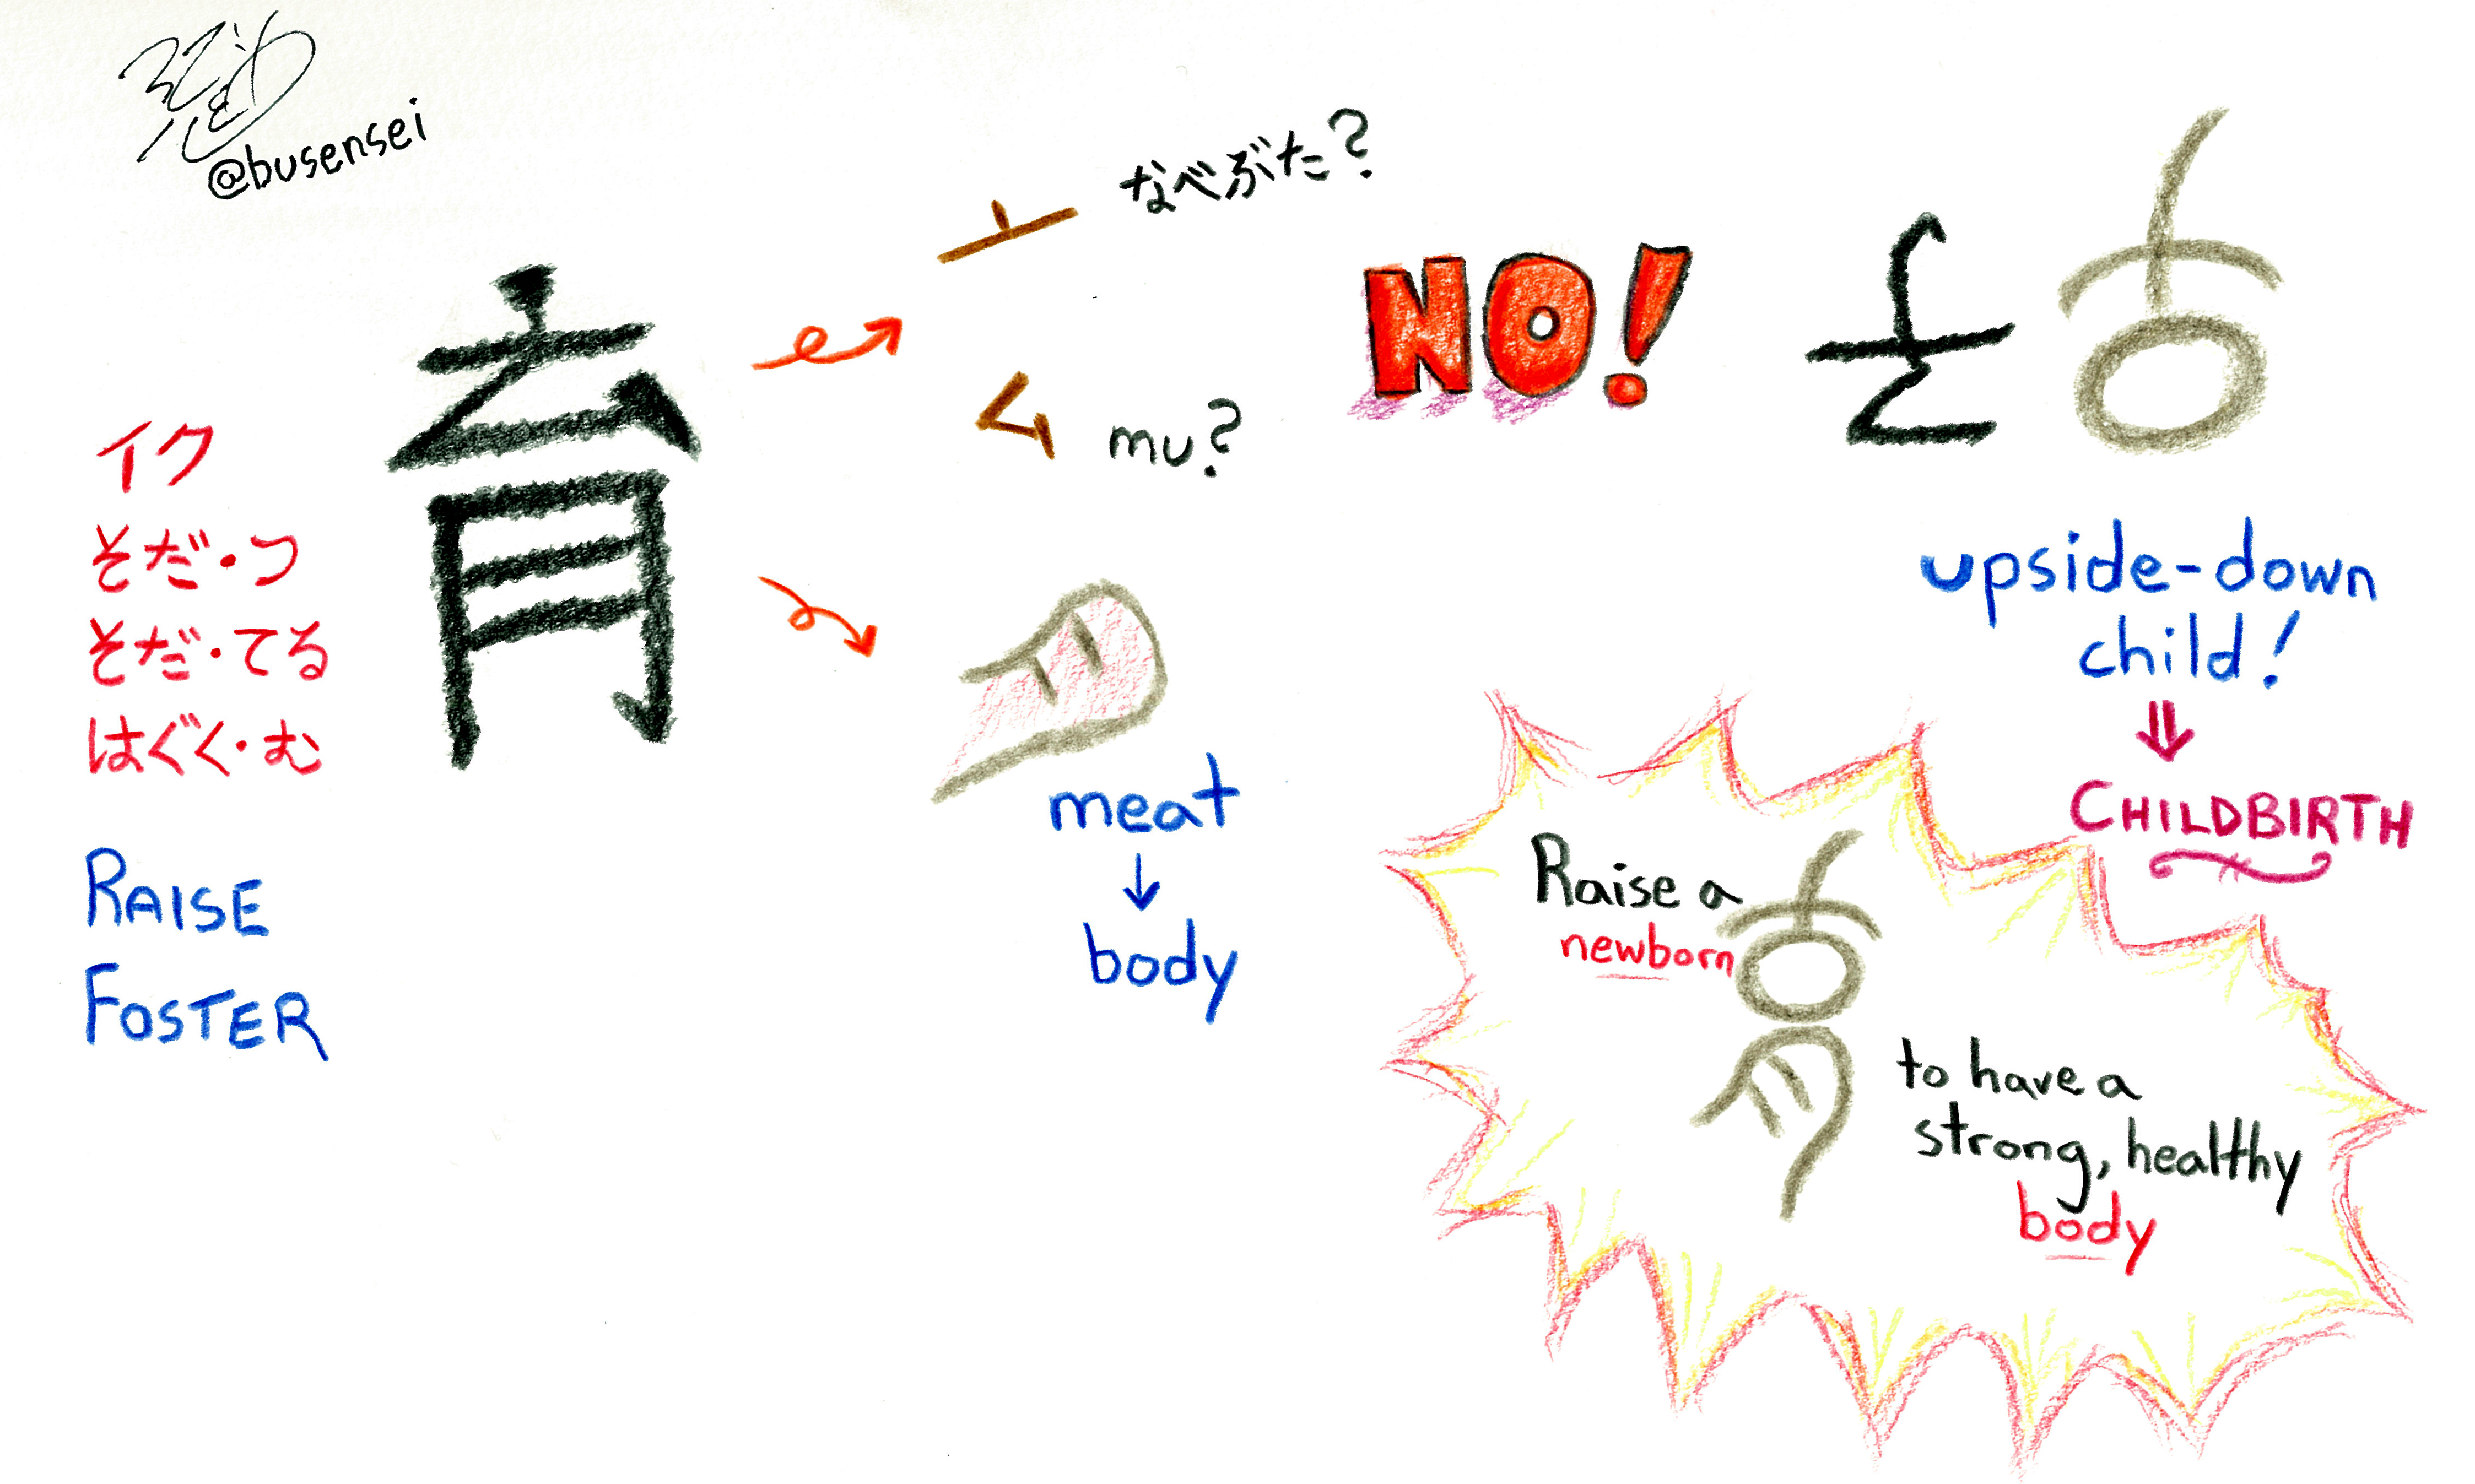 @busensei
育
イク
そだ・つ
そだ・てる
はぐく・む
RAISE
FOSTER
亠 なべぶた?
ム mu?
NO!
𠫓
upside-down
child!
⇓
CHILDBIRTH
meat
↓
body
Raise a
newborn
to have a
strong, healthy
body